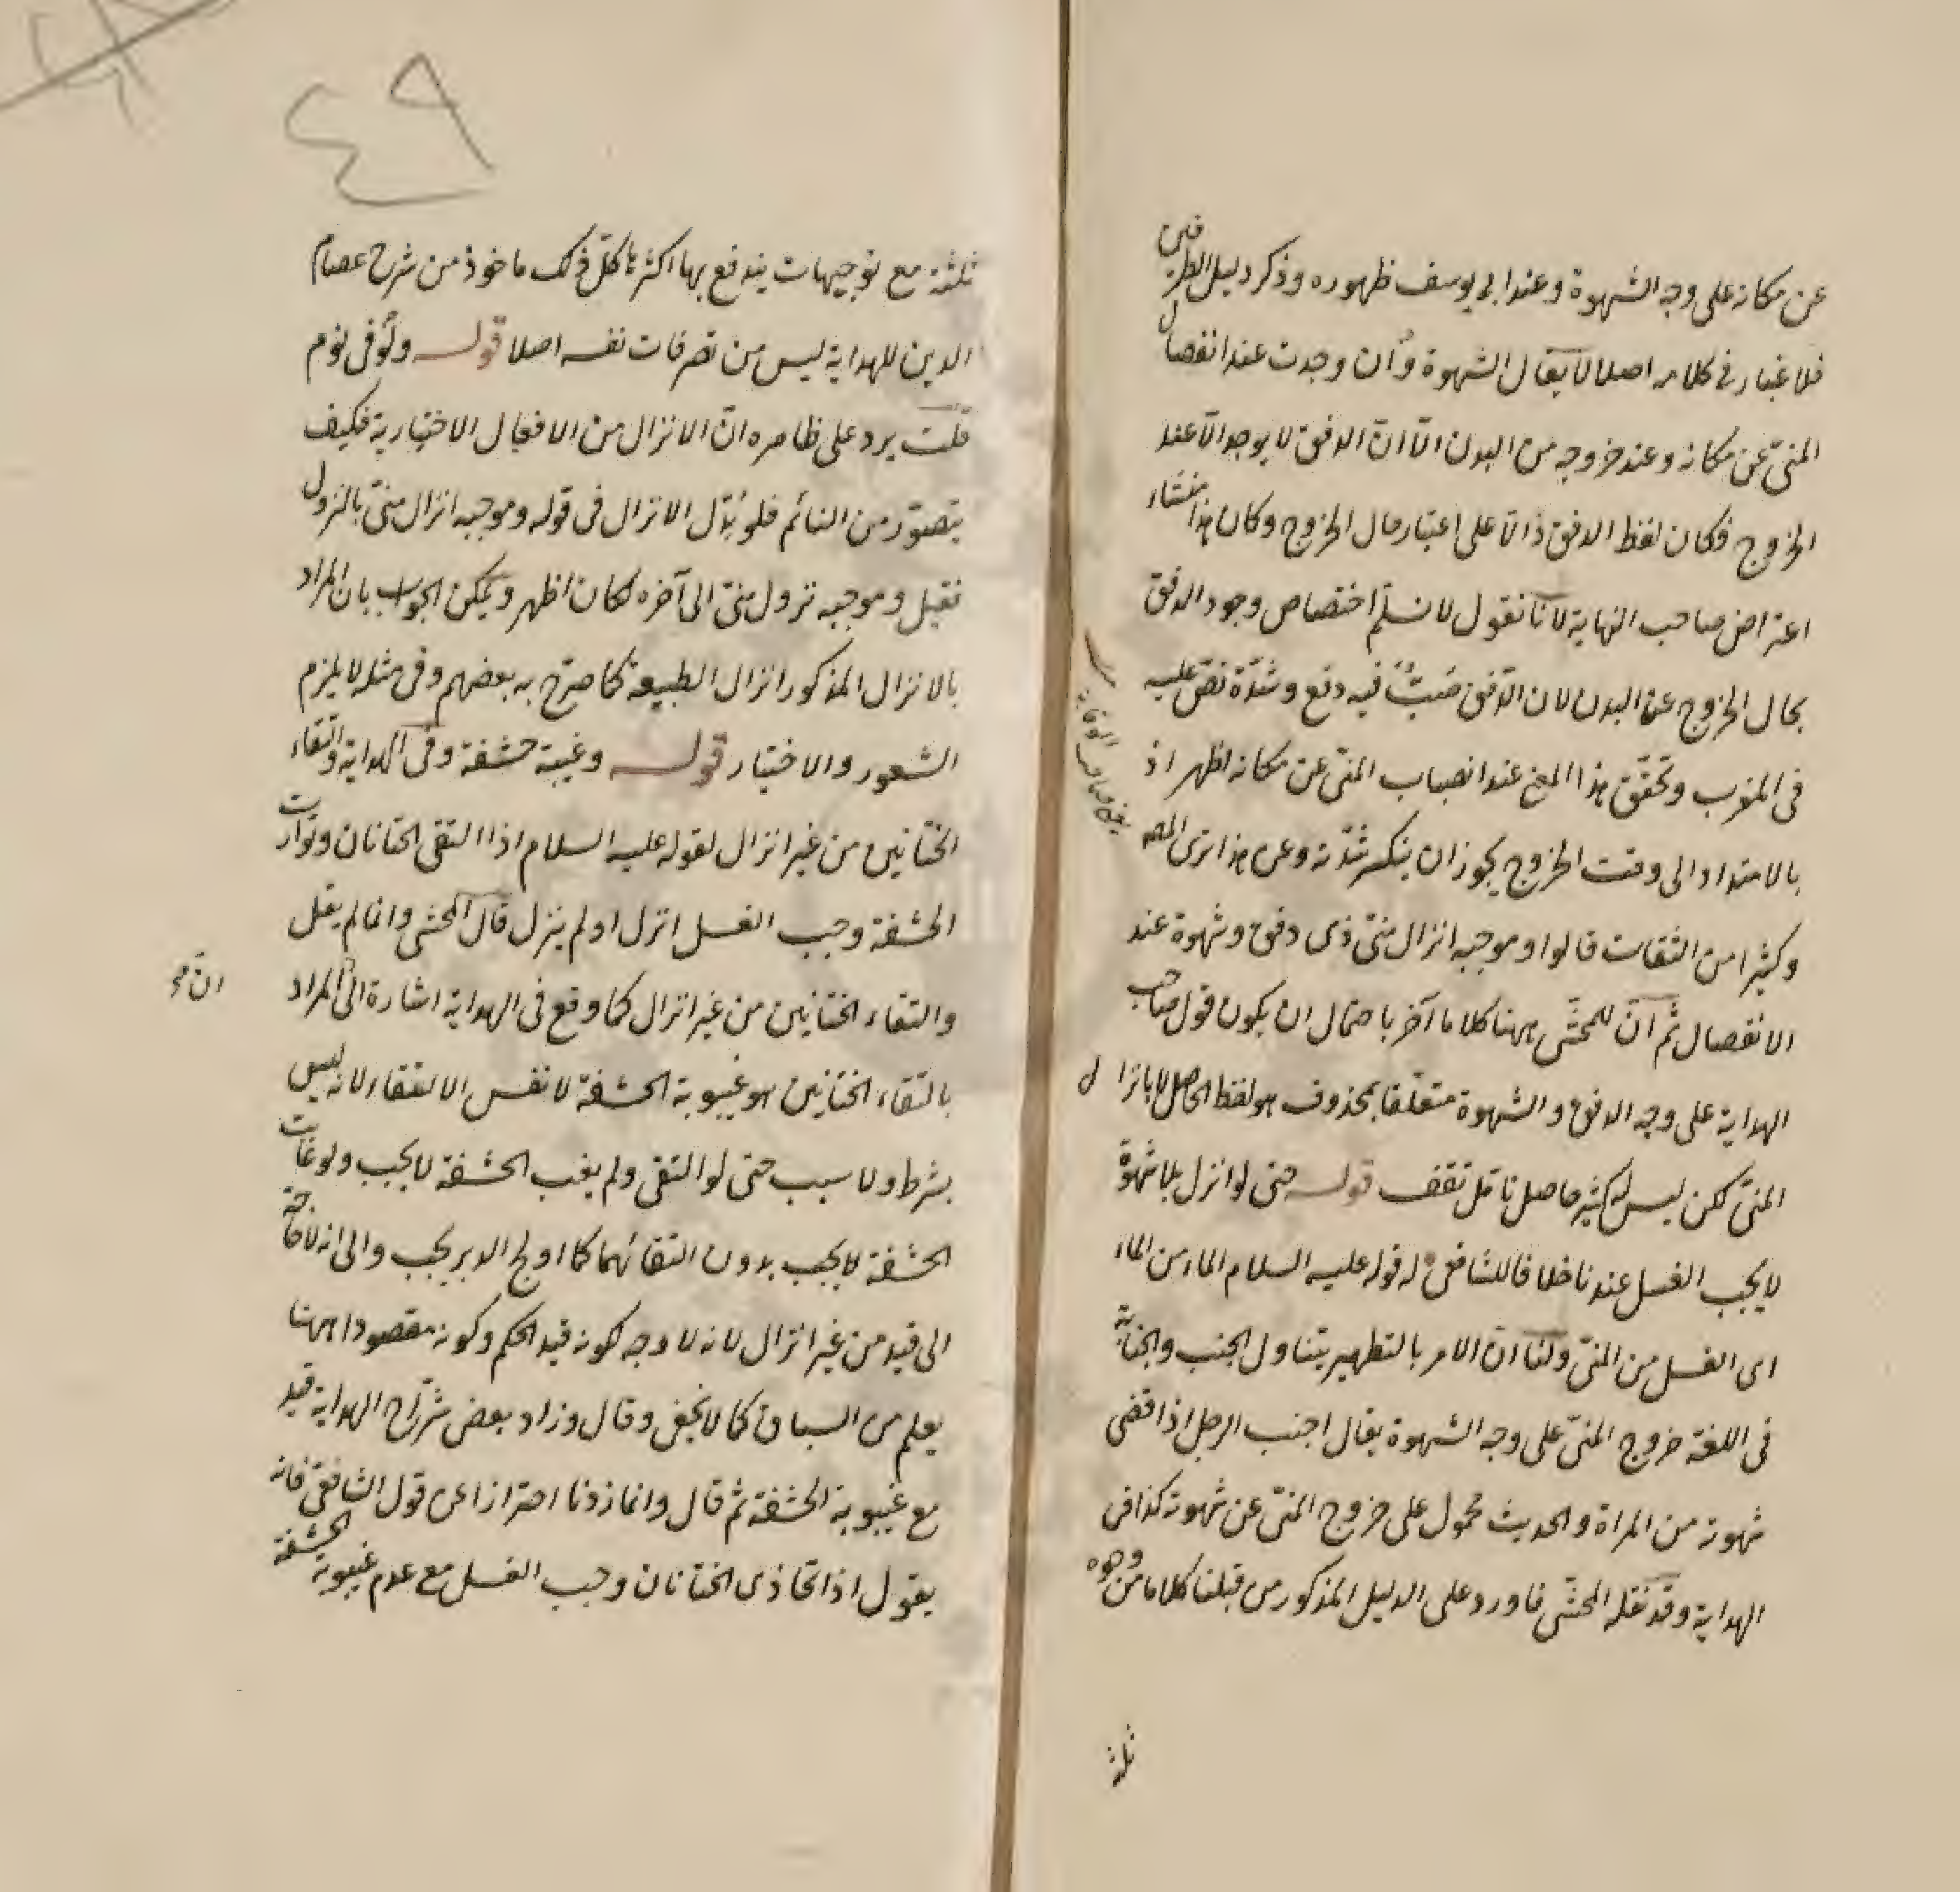 عن مكانه على وجه الشهوة وعند ابي يوسف ظهوره وذكر دليل الطرفين
فلا غبار في كلامه اصلا لا يقال الشهوة وان وجدت عند انفصال
المنىّ عن مكانه وعند خروجه من البدن الّا انّ الدفق لا يوجد الّا عند
الخروج فكان لفظ الدفق دالّا على اعتبار حال الخروج وكان هذا منشاء
اعتراض صاحب النهاية لانّا نقول لا نسلّم اختصاص وجود الدفق
بحال الخروج عن البدن لان الدّفق صَبٌّ فيه دفع وشدّة نصّ عليه
فى المغرب وتحقّق هذا المعنى عند انصباب المنىّ عن مكانه اظهر اذ
بالامتداد الى وقت الخروج يجوز ان ينكسر شدّته وعن هذا ترى المصـ
يعنى صاحب الوقاية
وكثيرا من الثقات قالوا وموجبه انزال منىّ ذى دفق وشهوة عند
الانفصال ثمّ انّ للمحشّى ههنا كلاما آخر باحتمال ان يكون قول صاحب
الهداية على وجه الدفق والشهوة متعلّقا بمحذوف هو لفظ الحاصل لا بانزال
المنىّ لكن ليس له كثير حاصل تأمّل تقف قوله حتى لو انزل بلا شهوة
لا يجب الغسل عندنا خلافا للشافعى له قوله عليه السلام الماء من الماء
اى الغسل من المنىّ ولنا انّ الامر بالتطهير يتناول الجنب والجنابة
فى اللغة خروج المنىّ على وجه الشهوة يقال اجنب الرجل اذا قضى
شهوته من المراة والحديث محمول على خروج المنىّ عن شهوة كذا فى
الهداية وقد نقله المحشّى فاورد على الدليل المذكور من قبلنا كلاما من وجوه
ثلثة
٤٩
ثلثة مع توجيهات يندفع بها اكثرها كلّ ذلك ماخوذ من شرح عصام
الدين للهداية ليس من تصرفات نفسه اصلا قوله ولو فى نوم
قلت يرد على ظاهره انّ الانزال من الافعال الاختيارية فكيف
يتصوّر من النائم فلو بُدّل الانزال فى قوله وموجبه انزال منىّ بالنزول
فقيل وموجبه نزول منىّ الى آخره لكان اظهر ويمكن الجواب بان المراد
بالانزال المذكور انزال الطبيعة كما صرّح به بعضهم وفى مثله لا يلزم
الشعور والاختيار قوله وغيبة حشفة وفى الهداية والتقاء
الختانين من غير انزال لقوله عليه السلام اذا التقى الختانان وتوارت
الحشفة وجب الغسل انزل او لم ينزل قال المحشى وانما لم يقل
والتقاء الختانين من غير انزال كما وقع فى الهداية اشارة الى المراد
انّ صح
بالتقاء الختانين هو غيبوبة الحشفة لا نفس الالتقاء لانه ليس
بشرط ولا سبب حتى لو التقى ولم يغب الحشفة لا يجب ولو غابت
الحشفة لا يجب بدون التقائهما كما اولج الدبر يجب والى انه لا حاجة
الى قيد من غير انزال لانه لا وجه لكونه قيد الحكم وكونه مقصودا ههنا
يعلم من السباق كما لا يخفى وقال وزاد بعض شرّاح الهداية قيد
مع غيبوبة الحشفة ثم قال وانما زدنا احترازا عن قول الشافعىّ فانه
يقول اذا تحاذى الختانان وجب الغسل مع عدم غيبوبة الحشفة